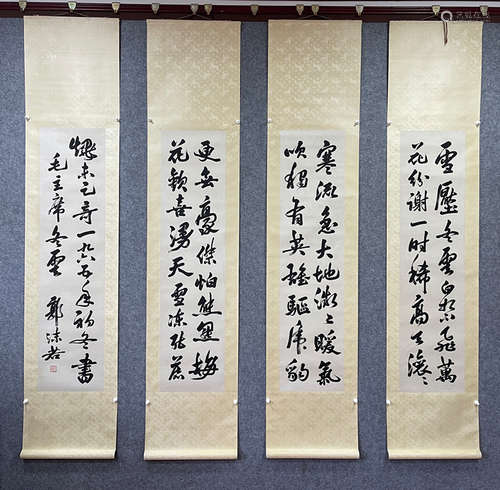 雪壓冬雲白絮飛萬
花纷謝一时稀高天滚〻
寒流急大地微〻暖氣
吹獨有英雄驅虎豹
更無豪傑怕熊羆梅
花歡喜漫天雪凍死蒼
蠅未足奇一九六五年初冬書
毛主席冬雲
郭沫若